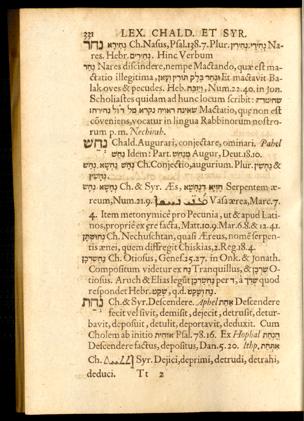 331 LEX. CHALD. ET SYR.
נחר נחירא Ch. Nasus, Psal. 138.7. Plur. נחירי, נחירין Na-
res. Hebr. נחירים. Hinc Verbum
נחר Nares discindere, nempe Mactando, quæ est ma-
ctatio illegitima, ונחר בלק תורין וען Et mactavit Ba-
lak oves & pecudes. Heb. ויזבח, Num. 22. 40. in Jon.
Scholiastes quidam ad hunc locum scribit:
Mactatio, quæ non est
cõveniens, vocatur in lingua Rabbinorum nostro-
rum p. m. Nechirah.
נחש Chald. Augurari, conjectare, ominari. Pahel
נחש Idem: Part. מנחש Augur, Deut. 18. 10.
נחש Ch. Conjectio, augurium. Plur. נחשין &
נחשין.
נחשא Ch. & Syr. Æs, חויא דנחשא Serpentem æ-
reum, Num. 21. 9. Vasa ærea, Marc. 7.
4. Item metonymicè pro Pecunia, ut & apud Lati-
nos, propriè ex ære facta, Matt. 10. 9. Mar. 6. 8. & 12. 41.
נחושתן Ch. Nechuschtan, quasi Æreus, nomẽ serpen-
tis ænei, quem diffregit Chiskias, 2. Reg. 18. 4.
נחשרכן Ch. Otiosus, Genes. 25. 27. in Onk. & Jonath.
Compositum videtur ex נח Tranquillus, & O-
tiosus. Aruch & Elias legũt per ד, à quod
respondet Hebr. שקט, q. d. נח ושקט.
נחת Ch. & Syr. Descendere. Aphel אחת Descendere
fecit vel sivit, demisit, dejecit, detrusit, detur-
bavit, deposuit, detulit, deportavit, deduxit. Cum
Cholem ab initio Psal. 78. 16. Ex Hophal הנחת
Descendere factus, depositus, Dan. 5. 20. Ithp,
Ch. Syr. Dejici, deprimi, detrudi, detrahi,
deduci. Tt 2